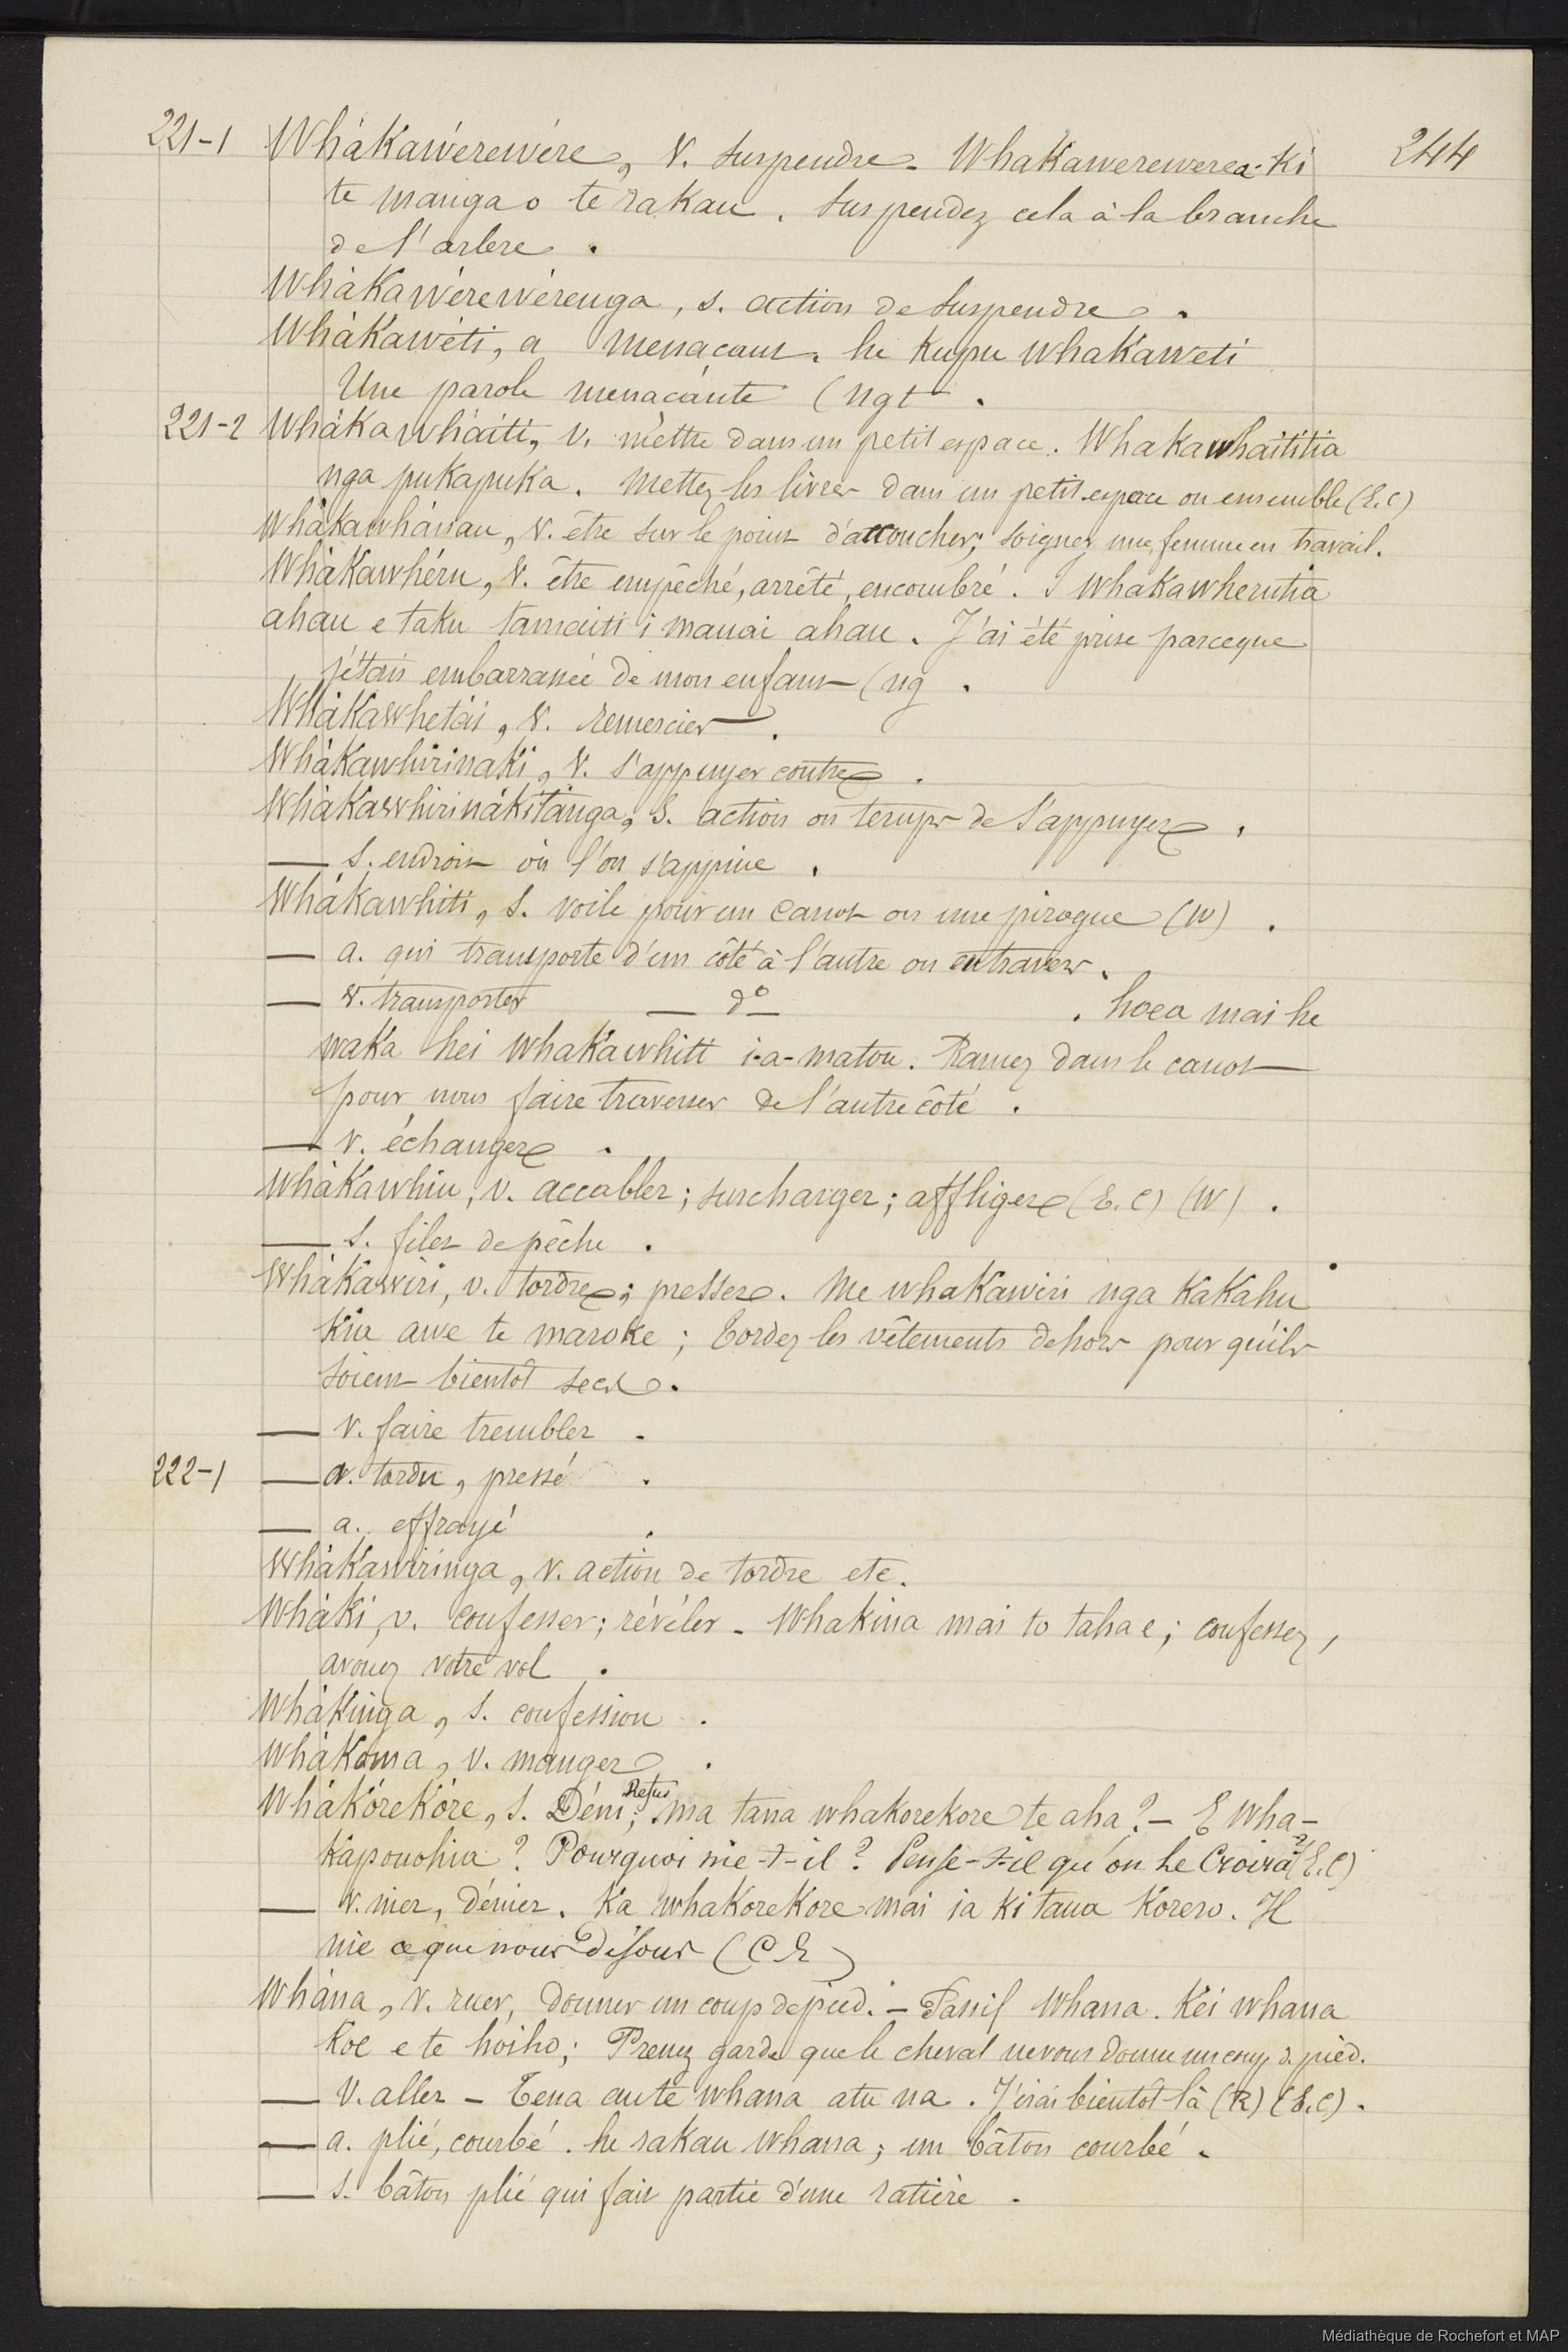 221-1 Whàkawérewére, V. suspendre. Whakawerewerea-ki 244
te manga o te rakau. Suspendez cela à la branche
de l'arbre.
Whàkawérewérenga, s. action de suspendre.
Whàkawéti, a menaçant. he kupu whakaweti
Une parole menaçante (ngt.
221-2 Whàkawhàiti, V. mettre dans un petit espace. Whakawhaititia
nga pukapuka. Mettez les livres dans un petit espace ou ensemble (E.C)
Whàkawhánau, V. être sur le point d'accoucher; soigner une femme en travail.
Whàkawhéru, V. être empêché, arrêté, encombré. I whakawherutia
ahau e taku tamaiti i mauai ahau. J'ai été prise parceque
j'étais embarrassée de mon enfant (ng.
Whàkawhetái, V. remercier.
Whàkawhirinaki, V. s'appuyer contre.
Whàkawhirinákitánga, s. action ou temps de s'appuyer.
— s. endroit où l'on s'appuie.
Whàkawhiti, s. voile pour un canot ou une pirogue (W).
— a. qui transporte d'un côté à l'autre ou entravers.
— v. transporter — d° — . hoea mai he
waka hei whakawhiti i-a-matou. Ramez dans le canot
pour nous faire traverser de l'autre côté.
— v. échanger.
Whàkawhiu, v. accabler; surcharger; affliger (E.C) (W).
— s. filet de pêche.
Whàkawiri, v. tordre; presser. Me whakawiri nga kakahu
kia awe te maroke; Tordez les vêtements dehors pour qu'ils
soient bientôt secs.
— v. faire trembler.
222-1 — a. tordu, pressé.
— a. effrayé.
Whàkawiringa, v. action de tordre etc.
Whàki, v. confesser; révéler. Whakina mai to tahae; confessez,
avouez votre vol.
Whàkinga, s. confession.
Whàkoma, v. manger.
Whàkórekóre, s. Déni; Refus. ma tana whakorekore te aha? — E wha-
kapouohia? Pourquoi nie-t-il? Pense-t-il qu'on le Croira? (E.C)
— v. nier, dénier. Ka whakorekore mai ia ki taua korero. Il
nie ce que nous disons (C E)
Whàna, v. ruer, donner un coup de pied. — Passif Whana. Kei whana
koe e te hoiho; Prenez garde que le cheval ne vous donne un coup de pied.
— V. aller — Tena au te whana atu na. J'irai bientôt là (R) (E.C).
— a. plié, courbé. he rakau whana; un bâton courbé.
— s. bâton plié qui fait partie d'une ratière.
Médiathèque de Rochefort et MAP